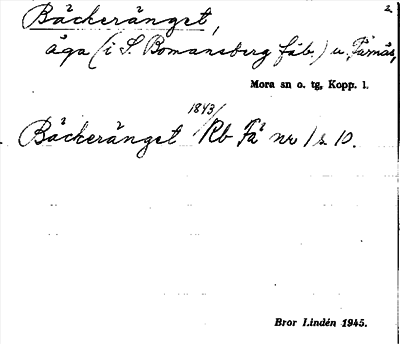 Bäckeränget, 2.
äga (i S. Bomansberg fäb.) u. Fåmås,
Mora sn o. tg, Kopp. l.
1843/
Bäckeränget Rb Få nr 1 s. 10.
Bror Lindén 1945.